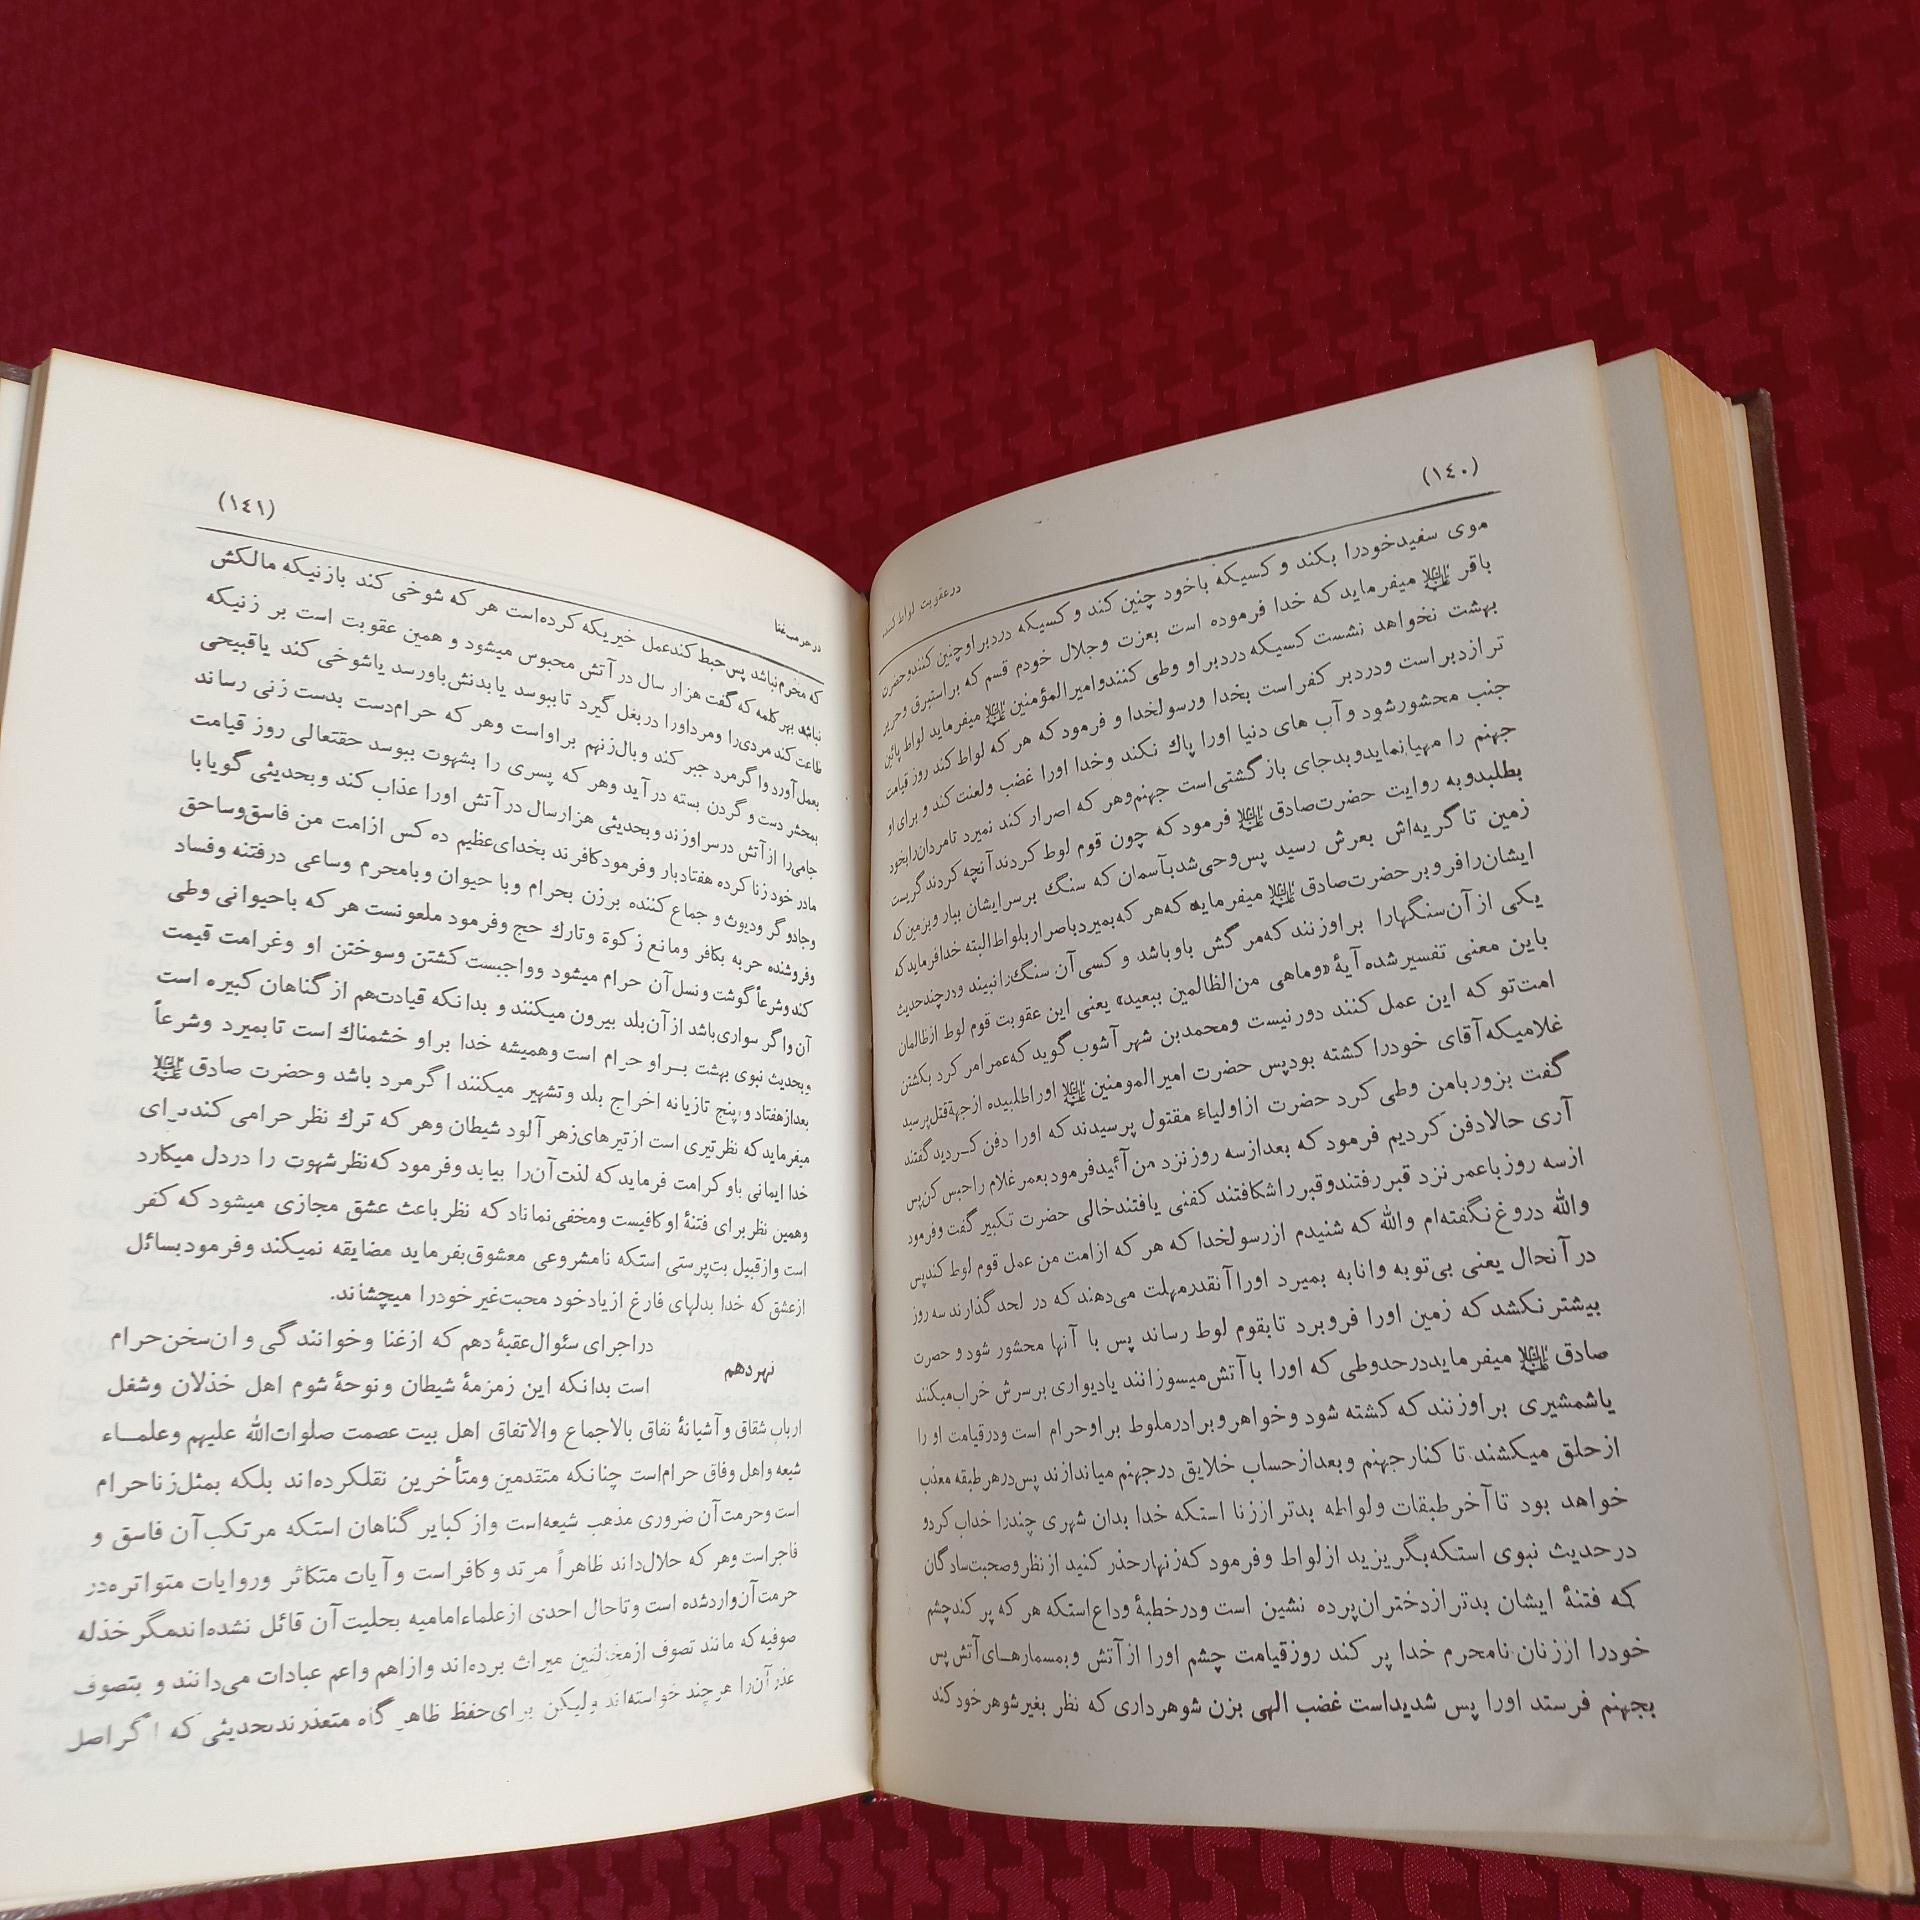 (١٤٠)
در عقوبت لواط کننده
موی سفید خودرا بکند و کسیکه باخود چنین کند و کسیکه دردبر اوچنین کنند و حضرت
باقر علیه‌السلام میفرماید که خدا فرموده است بعزت و جلال خودم قسم که بر استبرق و حریر
بهشت نخواهد نشست کسیکه دردبر او وطی کنند و امیر المؤمنین علیه‌السلام میفرماید لواط پائین
تر از دبر است ودردبر کفر است بخدا ورسولخدا و فرمود که هر که لواط کند روز قیامت
جنب محشور شود و آب های دنیا اورا پاك نکند وخدا اورا غضب ولعنت کند و برای او
جهنم را مهیا نماید و بدجای بازگشتی است جهنم و هر که اصرار کند نمیرد تا مردان را بخود
بطلبد و به روایت حضرت صادق علیه‌السلام فرمود که چون قوم لوط کردند آنچه کردند گریست
زمین تا گریه‌اش بعرش رسید پس وحی شد بآسمان که سنگ بر سر ایشان ببار و بزمین که
ایشان را فرو بر حضرت صادق علیه‌السلام میفرماید که هر که بمیرد با صرار بلواط البته خدا فرماید که
یکی از آن سنگهارا بر او زنند که مرگش باو باشد و کسی آن سنگ را نبیند و در چند حدیث
باین معنی تفسیر شده آیهٔ «وماهی من الظالمین ببعید» یعنی این عقوبت قوم لوط از ظالمان
امت تو که این عمل کنند دور نیست ومحمد بن شهر آشوب گوید که عمر امر کرد بکشتن
غلامیکه آقای خودرا کشته بود پس حضرت امیر المومنین علیه‌السلام اورا طلبیده از جهة قتل پرسید
گفت بزور با من وطی کرد حضرت از اولیاء مقتول پرسیدند که اورا دفن کـردید گفتند
آری حالا دفن کردیم فرمود که بعد از سه روز نزد من آئید فرمود بعمر غلام را حبس کن پس
از سه روز با عمر نزد قبر رفتند و قبر را شکافتند کفنی یافتند خالی حضرت تکبیر گفت و فرمود
والله دروغ نگفته‌ام والله که شنیدم از رسولخدا که هر که از امت من عمل قوم لوط کند پس
در آنحال یعنی بی توبه و انابه بمیرد اورا آنقدر مهلت می‌دهند که در لحد گذارند سه روز
بیشتر نکشد که زمین اورا فرو برد تا بقوم لوط رساند پس با آنها محشور شود و حصرت
صادق علیه‌السلام میفرماید در حد وطی که اورا با آتش میسوزانند یادیواری بر سرش خراب میکنند
یا شمشیری بر او زنند که کشته شود وخواهر وبرادر ملوط بر او حرام است ودر قیامت او را
از حلق میکشند تا کنار جهنم و بعد از حساب خلایق در جهنم میاندازند پس در هر طبقه معذب
خواهد بود تا آخر طبقات ولواطه بدتر از زنا استکه خدا بدان شهری چند را خداب کرد و
در حدیث نبوی استکه بگریزید از لواط وفرمود که زنهار حذر کنید از نظر وصحبت سادگان
که فتنهٔ ایشان بدتر از دختران پرده نشین است و در خطبهٔ وداع استکه هر که پر کند چشم
خودرا از زنان نامحرم خدا پر کند روز قیامت چشم اورا از آتش و بمسمارهـای آتش پس
بجهنم فرستد اورا پس شدید است غضب الهی بزن شوهرداری که نظر بغیر شوهر خود کند
(١٤١)
در حرمت غنا
که محرم نباشد پس حبط کند عمل خیریکه کرده‌است هر که شوخی کند بازنیکه مالکش
نباشد بهر کلمه که گفت هزار سال در آتش محبوس میشود و همین عقوبت است بر زنیکه
طاعت کند مردی را ومرد اورا در بغل گیرد تا ببوسد یا بدنش باو رسد یاشوخی کند یا قبیحی
بعمل آورد واگر مرد جبر کند وبال زنهم بر او است وهر که حرام دست بدست زنی رساند
بمحشر دست و گردن بسته در آید وهر که پسری را بشهوت ببوسد حقتعالی روز قیامت
جامی را از آتش در سر او زند و بحدیثی هزار سال در آتش اورا عذاب کند وبحدیثی گویا با
مادر خود زنا کرده هفتاد بار وفرمود کافرند بخدای عظیم ده کس از امت من فاسق و ساحق
وجادوگر ودیوث و جماع کننده بر زن بحرام وبا حیوان و بامحرم وساعی در فتنه وفساد
وفروشنده حربه بکافر ومانع زکوة وتارك حج وفرمود ملعونست هر که با حیوانی وطی
کند وشرعاً گوشت ونسل آن حرام میشود وواجبست کشتن وسوختن او وغرامت قیمت
آن واگر سواری باشد از آن بلد بیرون میکنند و بدانکه قیادت هم از گناهان کبیره است
وبحدیث نبوی بهشت بـر او حرام است وهمیشه خدا بر او خشمناك است تا بمیرد وشرعاً
بعد از هفتاد و پنج تازیانه اخراج بلد وتشهیر میکنند اگر مرد باشد وحضرت صادق علیه‌السلام
میفرماید که نظر تیری است از تیرهای زهر آلود شیطان وهر که ترك نظر حرامی کند برای
خدا ایمانی باو کرامت فرماید که لذت آن را بیابد وفرمود که نظر شهوت را در دل میکارد
وهمین نظر برای فتنهٔ او کافیست ومخفی نماناد که نظر باعث عشق مجازی میشود که کفر
است واز قبیل بت پرستی استکه نامشروعی معشوق بفرماید مضایقه نمیکند وفرمود بسائل
از عشق که خدا بدلهای فارغ از یاد خود محبت غیر خودرا میچشاند.
در اجرای سئوال عقبهٔ دهم که از غنا وخوانندگی وان سخن حرام
نهر دهم
است بدانکه این زمزمهٔ شیطان و نوحهٔ شوم اهل خذلان وشغل
ارباب شقاق و آشیانهٔ نفاق بالاجماع والاتفاق اهل بیت عصمت صلوات‌الله علیهم وعلمـاء
شیعه واهل وفاق حرام‌است چنانکه متقدمین ومتأخرین نقلکرده‌اند بلکه بمثل زنا حرام
است وحرمت آن ضروری مذهب شیعه‌است واز کبایر گناهان استکه مرتکب آن فاسق و
فاجر است وهر که حلال داند ظاهراً مرتد و کافر است و آیات متکاثر وروایات متواتره در
حرمت آن وارد شده است و تا حال احدی از علماء امامیه بحلیت آن قائل نشده اند مگر خذله
صوفیه که مانند تصوف از مخالفین میراث برده‌اند و از اهم واعم عبادات می‌دانند و بتصوف
عذر آن را هر چند خواسته‌اند ولیکن برای حفظ ظاهر گاه متعذرند بحدیثی که اگر اصل